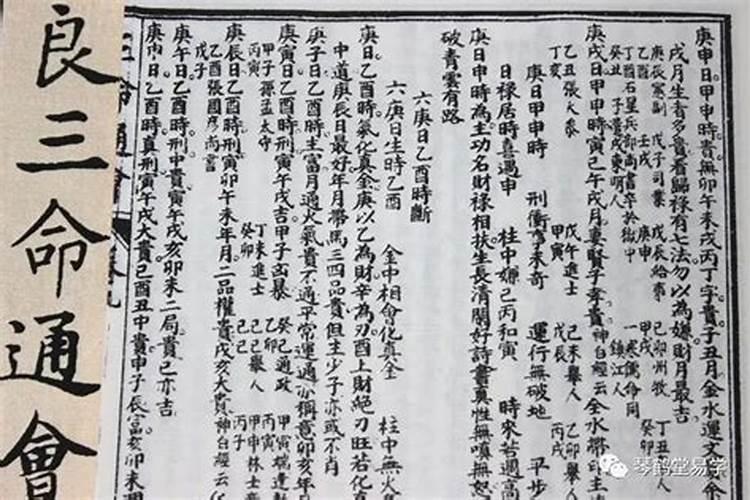 庚申日甲申時貴無卯午未戌丙丁字貴子丑月金水運文
戌月生者多貴看歸祿有七法勿以為嫌財月最吉
庚辰憲副 戊子司業 戊辰給事 己卯州牧 丁丑
丁酉 壬戌 庚申 甲戌 癸卯
石星兵部尚書卒於獄中 一寒儒命同
癸丑 子貴戌東明人 鎮江人
庚戌日甲申時刑寅巳午戌月妻賢子孝貴神白經云金水帶印主
乙丑張大參 戊午進士 己未舉人 乙卯舉
丁亥 甲寅 戊辰 丙戌
庚日甲申時 刑衝馬未奇 運行無破地 平步
日祿居時喜遇申 柱中嫌己丙和寅 時來若遇高
庚日申時為主功名財祿相扶生長清閒好詩書真性無嗔無怒
破青雲有路
六庚日乙酉時斷
六庚日生時乙酉 金中相會化真金 柱中無火
庚日乙酉時氣化真金庚以乙為財辛為刃酉上財絕刃旺若化真
中道庚辰日最好年月帶馬三四品貴但主少子亦或不肖
庚子日乙酉時主富月通火氣貴不過平常運通亦稱意卯亥年月
庚寅日乙酉時刑寅午戌吉甲子凶暴 癸巳通政 甲寅
甲子孫孟太守 丁未進士 乙卯 丙寅
丙寅 癸卯 己巳舉人 甲申
庚辰日乙酉時刑寅卯午未年月二品權貴戌亥大貴神白經云
乙酉張國彥尚書 己巳 丙子
戊子
庚午日乙酉時刑中貴寅午戌亥卯未二局貴巳亦吉
庚申日乙酉時真刑寅午戌大貴己酉丑中貴申子辰富亥卯未
三命通會
良三命通會
琴鹤堂易学